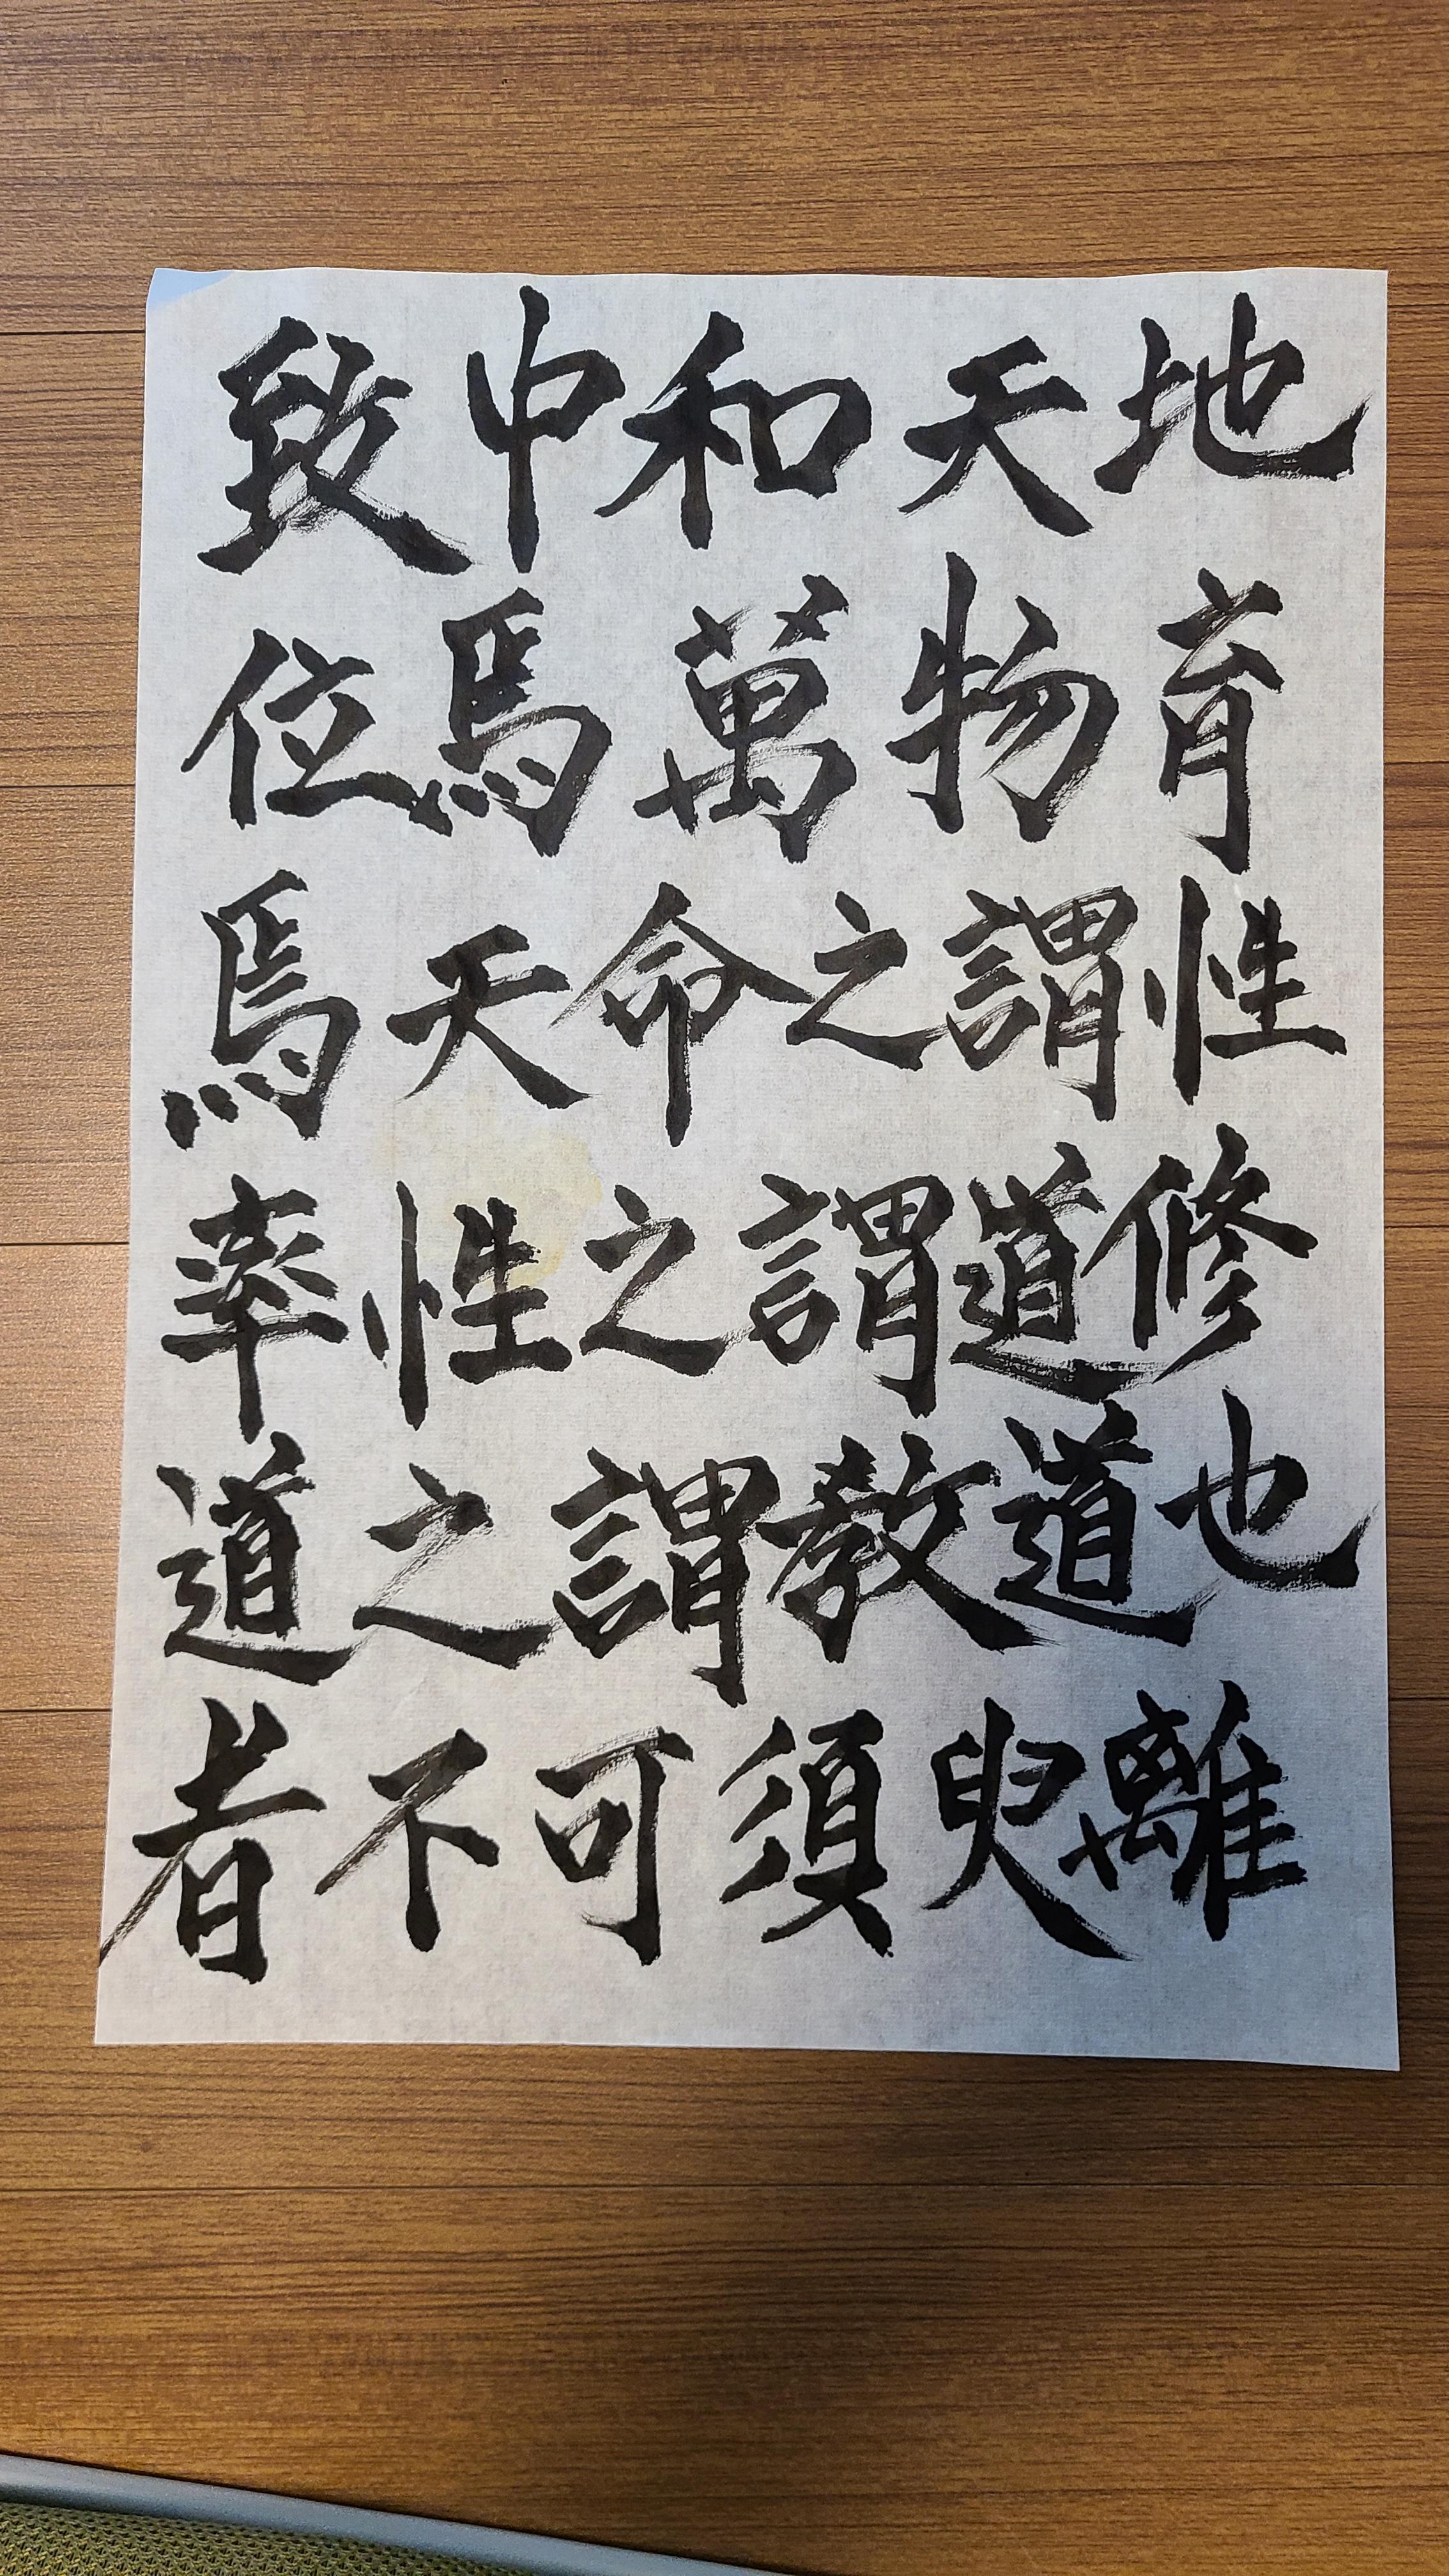 致中和天地
位焉萬物育
焉天命之謂性
率性之謂道修
道之謂教道也
者不可須臾離